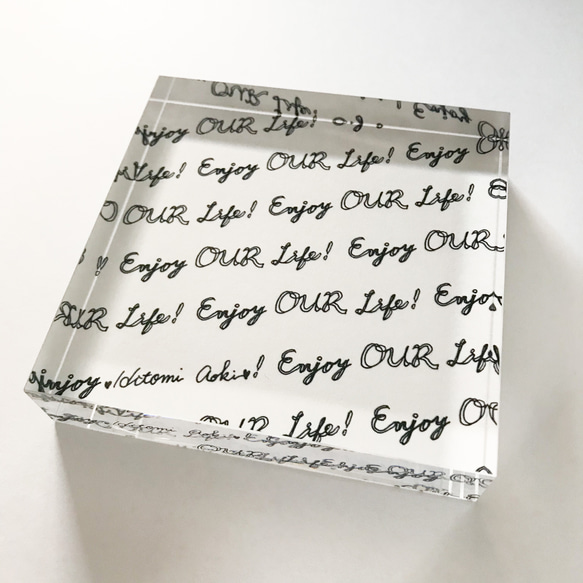 Enjoy OUR Life!
Life! Enjoy OUR Life! Enjoy
OUR Life! Enjoy OUR Life!
! Enjoy OUR Life! Enjoy OUR
OUR Life! Enjoy OUR Life! Enjoy
Enjoy ♥Hitomi Aoki♥! Enjoy OUR Life
OUR Life! Enjoy